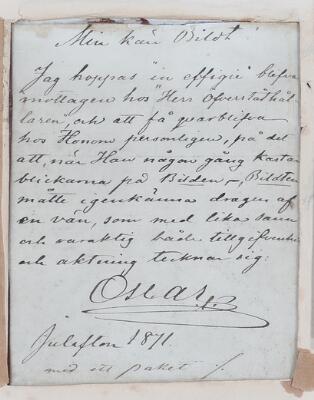 Min kära Bildt!
Jag hoppas "in effigie" blifva
mottagen hos "Herr Öfverståthål-
laren", och att få qvarblifva
hos Honom personligen, på det
att, när Han någon gång kastar
blickarna på Bilden –, Bildten
måtte igenkänna dragen af
en vän, som med lika sann
och varaktig både tillgifvenhet
och aktning tecknar sig:
Oscar
Julafton 1871.
med ett paket /.